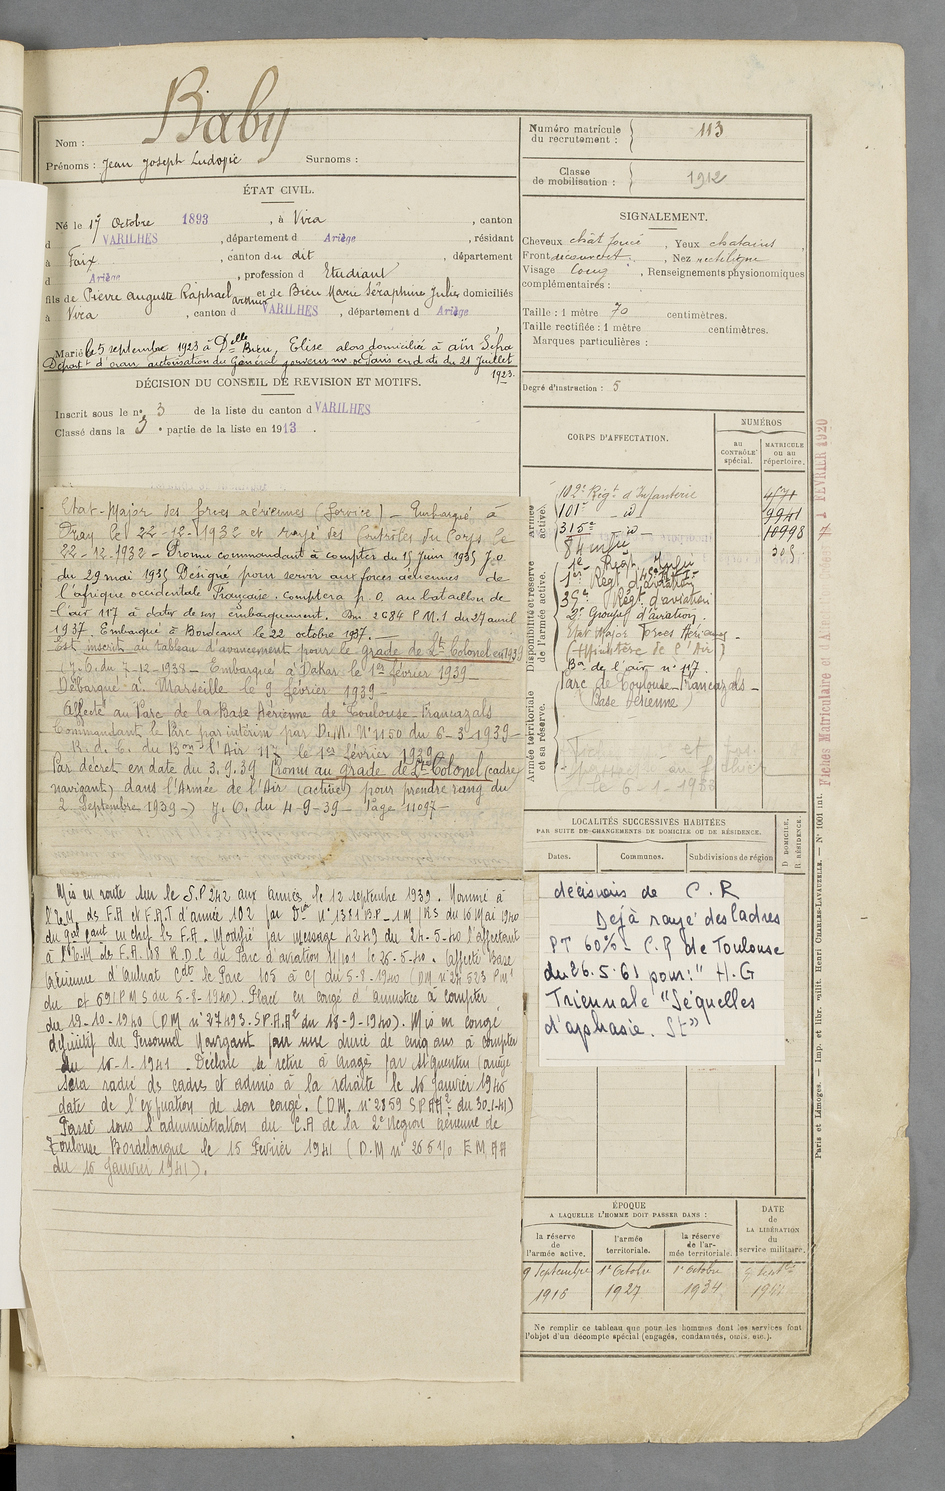 Baby
Nom :
Prénoms : Jean Joseph Ludovic Surnoms :
ÉTAT CIVIL.
Né le 17 Octobre 1893, à Vira, canton
d VARILHES, département d Ariège, résidant
à Foix, canton du dit, département
d Ariège, profession d Etudiant
fils de Pierre Auguste Raphael Arthur et de Bieu Marie Séraphine Julie domiciliés
à Vira, canton d VARILHES, département d Ariège
Marié le 5 septembre 1923 à Delle Bieu, Elise, alors domiciliée à Aïn Séfra
Départt d'Oran autorisation du Général gouverneur de Paris en date du 21 Juillet
1923.
DÉCISION DU CONSEIL DE REVISION ET MOTIFS.
Inscrit sous le no 3 de la liste du canton d VARILHES
Classé dans la 3e partie de la liste en 1913.
Etat-Major des forces aériennes (Service) - Embarqué à
le 22-12-1932 et rayé des Contrôles du Corps le
22-12-1932 - Promu commandant à compter du 15 Juin 1935 J.O.
du 29 mai 1935 Désigné pour servir aux forces aériennes de
l'afrique occidentale Française, comptera p.o. au bataillon de
l'air 117 à dater de son embarquement. Dm 2684 P.M.1 du 27 avril
1937. Embarqué à Bordeaux le 22 octobre 1937.
Est inscrit au tableau d'avancement pour le grade de Lt Colonel en 1939
(J.O. du 7-12-1938 - Embarqué à Dakar le 1er février 1939 -
Débarqué à Marseille le 9 février 1939 -
Affecté au Parc de la Base Aérienne de Toulouse-Francazals
Commandant le Parc par intérim par D.M. No 1150 du 6-3-1939 -
R. d. C. du Bon de l'Air 117 le 1er février 1939
Par décret en date du 3.9.39 Promu au grade de Lt Colonel (cadre
navigant) dans l'Armée de l'Air (active) pour prendre rang du
2 Septembre 1939 -) J.O. du 4-9-39 - Page 11097 -
Mis en route sur le S.P 242 aux armées le 12 septembre 1939. Nommé à
l'E.M. des F.A et F.A.T d'armée 102 par Don no 1351 B.P - 1M/RS du 16 Mai 1940
du Gal Cant en chef les F.A. Modifié par message 4249 du 24-5-40 l'affectant
à l'E.M des F.A. 108 R.D.C du Parc d'aviation 11/101 le 26-5-40. affecté Base
Aérienne d'Aulnat Cdt le Parc 105 à C/ du 5-8-1940 (DM no 24 523 PM1
du et 691 P M S du 5-8-1940). Placé en congé d'armistice à compter
du 19-10-1940 (DM no 27493. S.P.A.A2 du 18-9-1940). Mis en congé
définitif du Personnel Navigant pour une durée de cinq ans à compter
du 16-1-1941. Déclare se retirer à par St Quentin (ariège
Sera radié des cadres et admis à la retraite le 16 Janvier 1946
date de l'expiration de son congé. (DM. no 2859 SPAA2 du 30-1-41)
Passé sous l'administration du C.A de la 2e Region aérienne de
Toulouse Bordelongue le 15 Février 1941 (D.M no 265 1/0 E M A A
du 16 Janvier 1941).
Numéro matricule
du recrutement : 113
Classe
de mobilisation : 1912
SIGNALEMENT.
Cheveux chât foncé, Yeux chatains,
Front découvert, Nez rectiligne
Visage long, Renseignements physionomiques
complémentaires :
Taille : 1 mètre 70 centimètres.
Taille rectifiée : 1 mètre centimètres.
Marques particulières :
Degré d'instruction : 5
CORPS D'AFFECTATION.
NUMÉROS
AU CONTRÔLE spécial.
MATRICULE ou au répertoire.
Armée active.
Disponibilité et réserve de l'armée active.
Armée territoriale et sa réserve.
102e Régt d'Infanterie
101e - id - 9941
315e - id - 10998
84e infie 305
1er Régt d'aviation
35e Régt d'aviation
2e Groupe d'aviation.
Etat Major Forces Aériennes -
(Ministère de l'Air)
Bon de l'air no 117
Parc de Toulouse-Francazals -
(Base Aérienne)
LOCALITÉS SUCCESSIVES HABITÉES
PAR SUITE DE CHANGEMENTS DE DOMICILE OU DE RÉSIDENCE.
Dates. Communes. Subdivisions de région
D. DOMICILE,
R. RÉSIDENCE.
décisions de C.R
Dejà rayé des Cadres
PT 60% - C.R de Toulouse
du 26.5.61 pour: "H.G
Triennale "Séquelles
d'aphasie. St"
ÉPOQUE
A LAQUELLE L'HOMME DOIT PASSER DANS :
la réserve de l'armée active.
l'armée territoriale.
la réserve de l'armée territoriale.
DATE de LA LIBÉRATION du service militaire.
9 Septembre 1916
1er Octobre 1927
1er octobre 1934
Ne remplir ce tableau que pour les hommes dont les services font
l'objet d'un décompte spécial (engagés, condamnés, omis, etc.).
Paris et Limoges. — Imp. et libr. milit. Henri CHARLES-LAVAUZELLE. — No 1001 int.